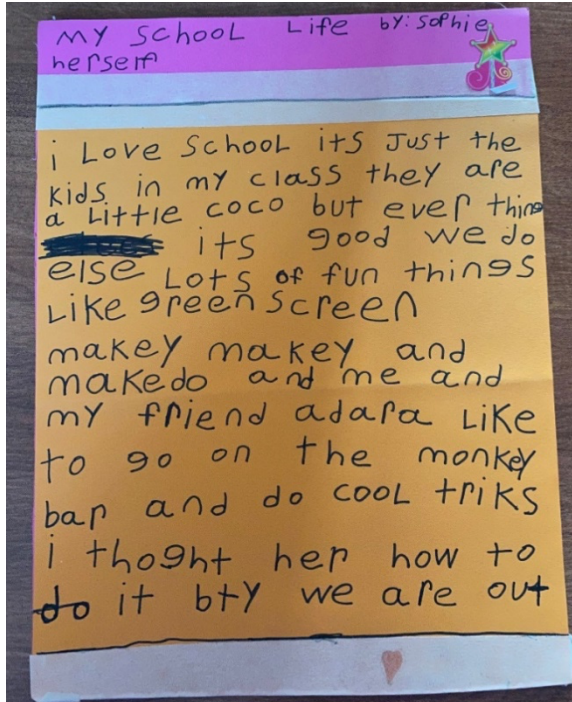 MY SCHOOL Life by: Sophie
herself
i Love School its Just the
kids in my class they are
a Little coco but ever thing
its good we do
else Lots of fun things
Like green screen
makey makey and
makedo and me and
my friend adara Like
to go on the monkey
bar and do cool triks
i thoght her how to
do it bty we are out